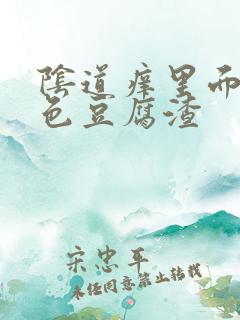 陰道痒里而
色豆腐渣
宋忠平
未经同意禁止转载